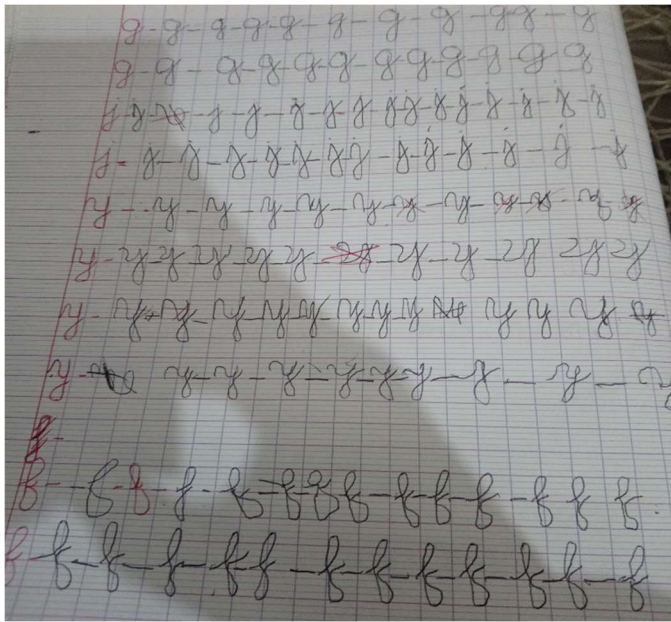 g - g - g - g - g - g - g - g - gg - g
g - g - g - g - g - g - g - g - g - g - g
j - j - j - j - j - j - j - j - j - j - j - j - j - j
j - j - j - j - j - j - j - j - j - j - j - j - j - j
y - y - y - y - y - y - y - y - y - y - y - y
y - y - y - y - y - y - y - y - y - y y y
y - y - y - y - y - y - y - y - y y y y
y - y - y - y - y - y - y - y - y - y
f -
f - f - f - f - f - f - f - f - f - f - f - f f f
f - f - f - f - f f - f - f - f - f - f - f - f